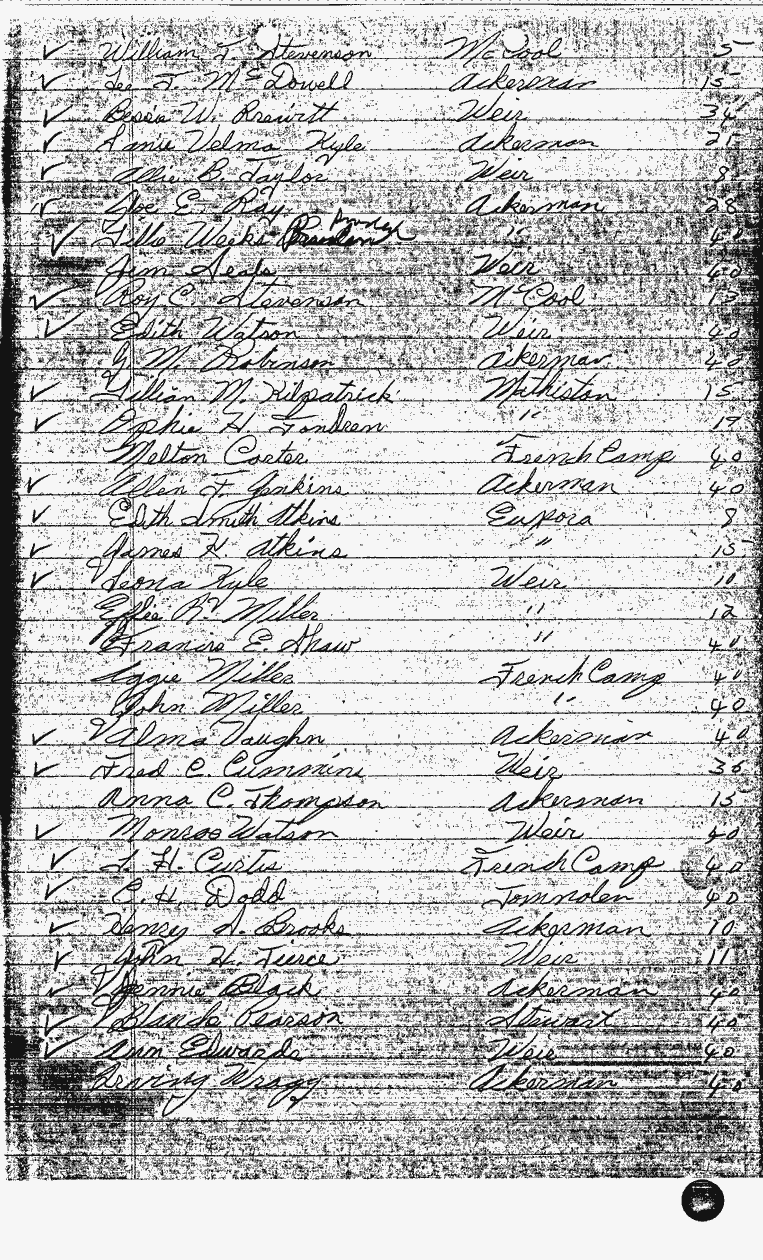 ✓ William T. Stevenson McCool 5
✓ Lee F. McDowell Ackerman 15
✓ Bessie W. Prewitt Weir 34
✓ Annie Velma Kyle Ackerman 21
✓ Allie B. Taylor Weir 8
✓ Joe E. Ray Ackerman 28
✓ Lillie Weeks " 40
Jim Seals Weir 40
✓ Roy C. Stevenson McCool 15
✓ Edith Watson Weir 40
G. M. Robinson Ackerman 40
✓ Lillian M. Kilpatrick Mathiston 15
✓ Ophie H. Fondren " 17
Melton Carter French Camp 40
✓ Allen F. Jenkins Ackerman 40
✓ Edith Smith Atkins Eupora 8
✓ James H. Atkins " 15
✓ Leona Kyle Weir 10
Effie R. Miller " 12
Francis E. Shaw " 40
Aggie Miller French Camp 40
John Miller " 40
✓ Valma Vaughn Ackerman 40
✓ Fred C. Cummins Weir 36
Anna C. Thompson Ackerman 15
✓ Monroe Watson Weir 40
✓ L. H. Curtis French Camp 40
✓ C. H. Dodd Tomnolen 40
✓ Henry A. Brooks Ackerman 10
✓ John H. Fierce Weir 11
✓ Jennie Black Ackerman 40
✓ Blanch Pearson Stewart 40
✓ Ann Edwards Weir 40
Irving Wragg Ackerman 40